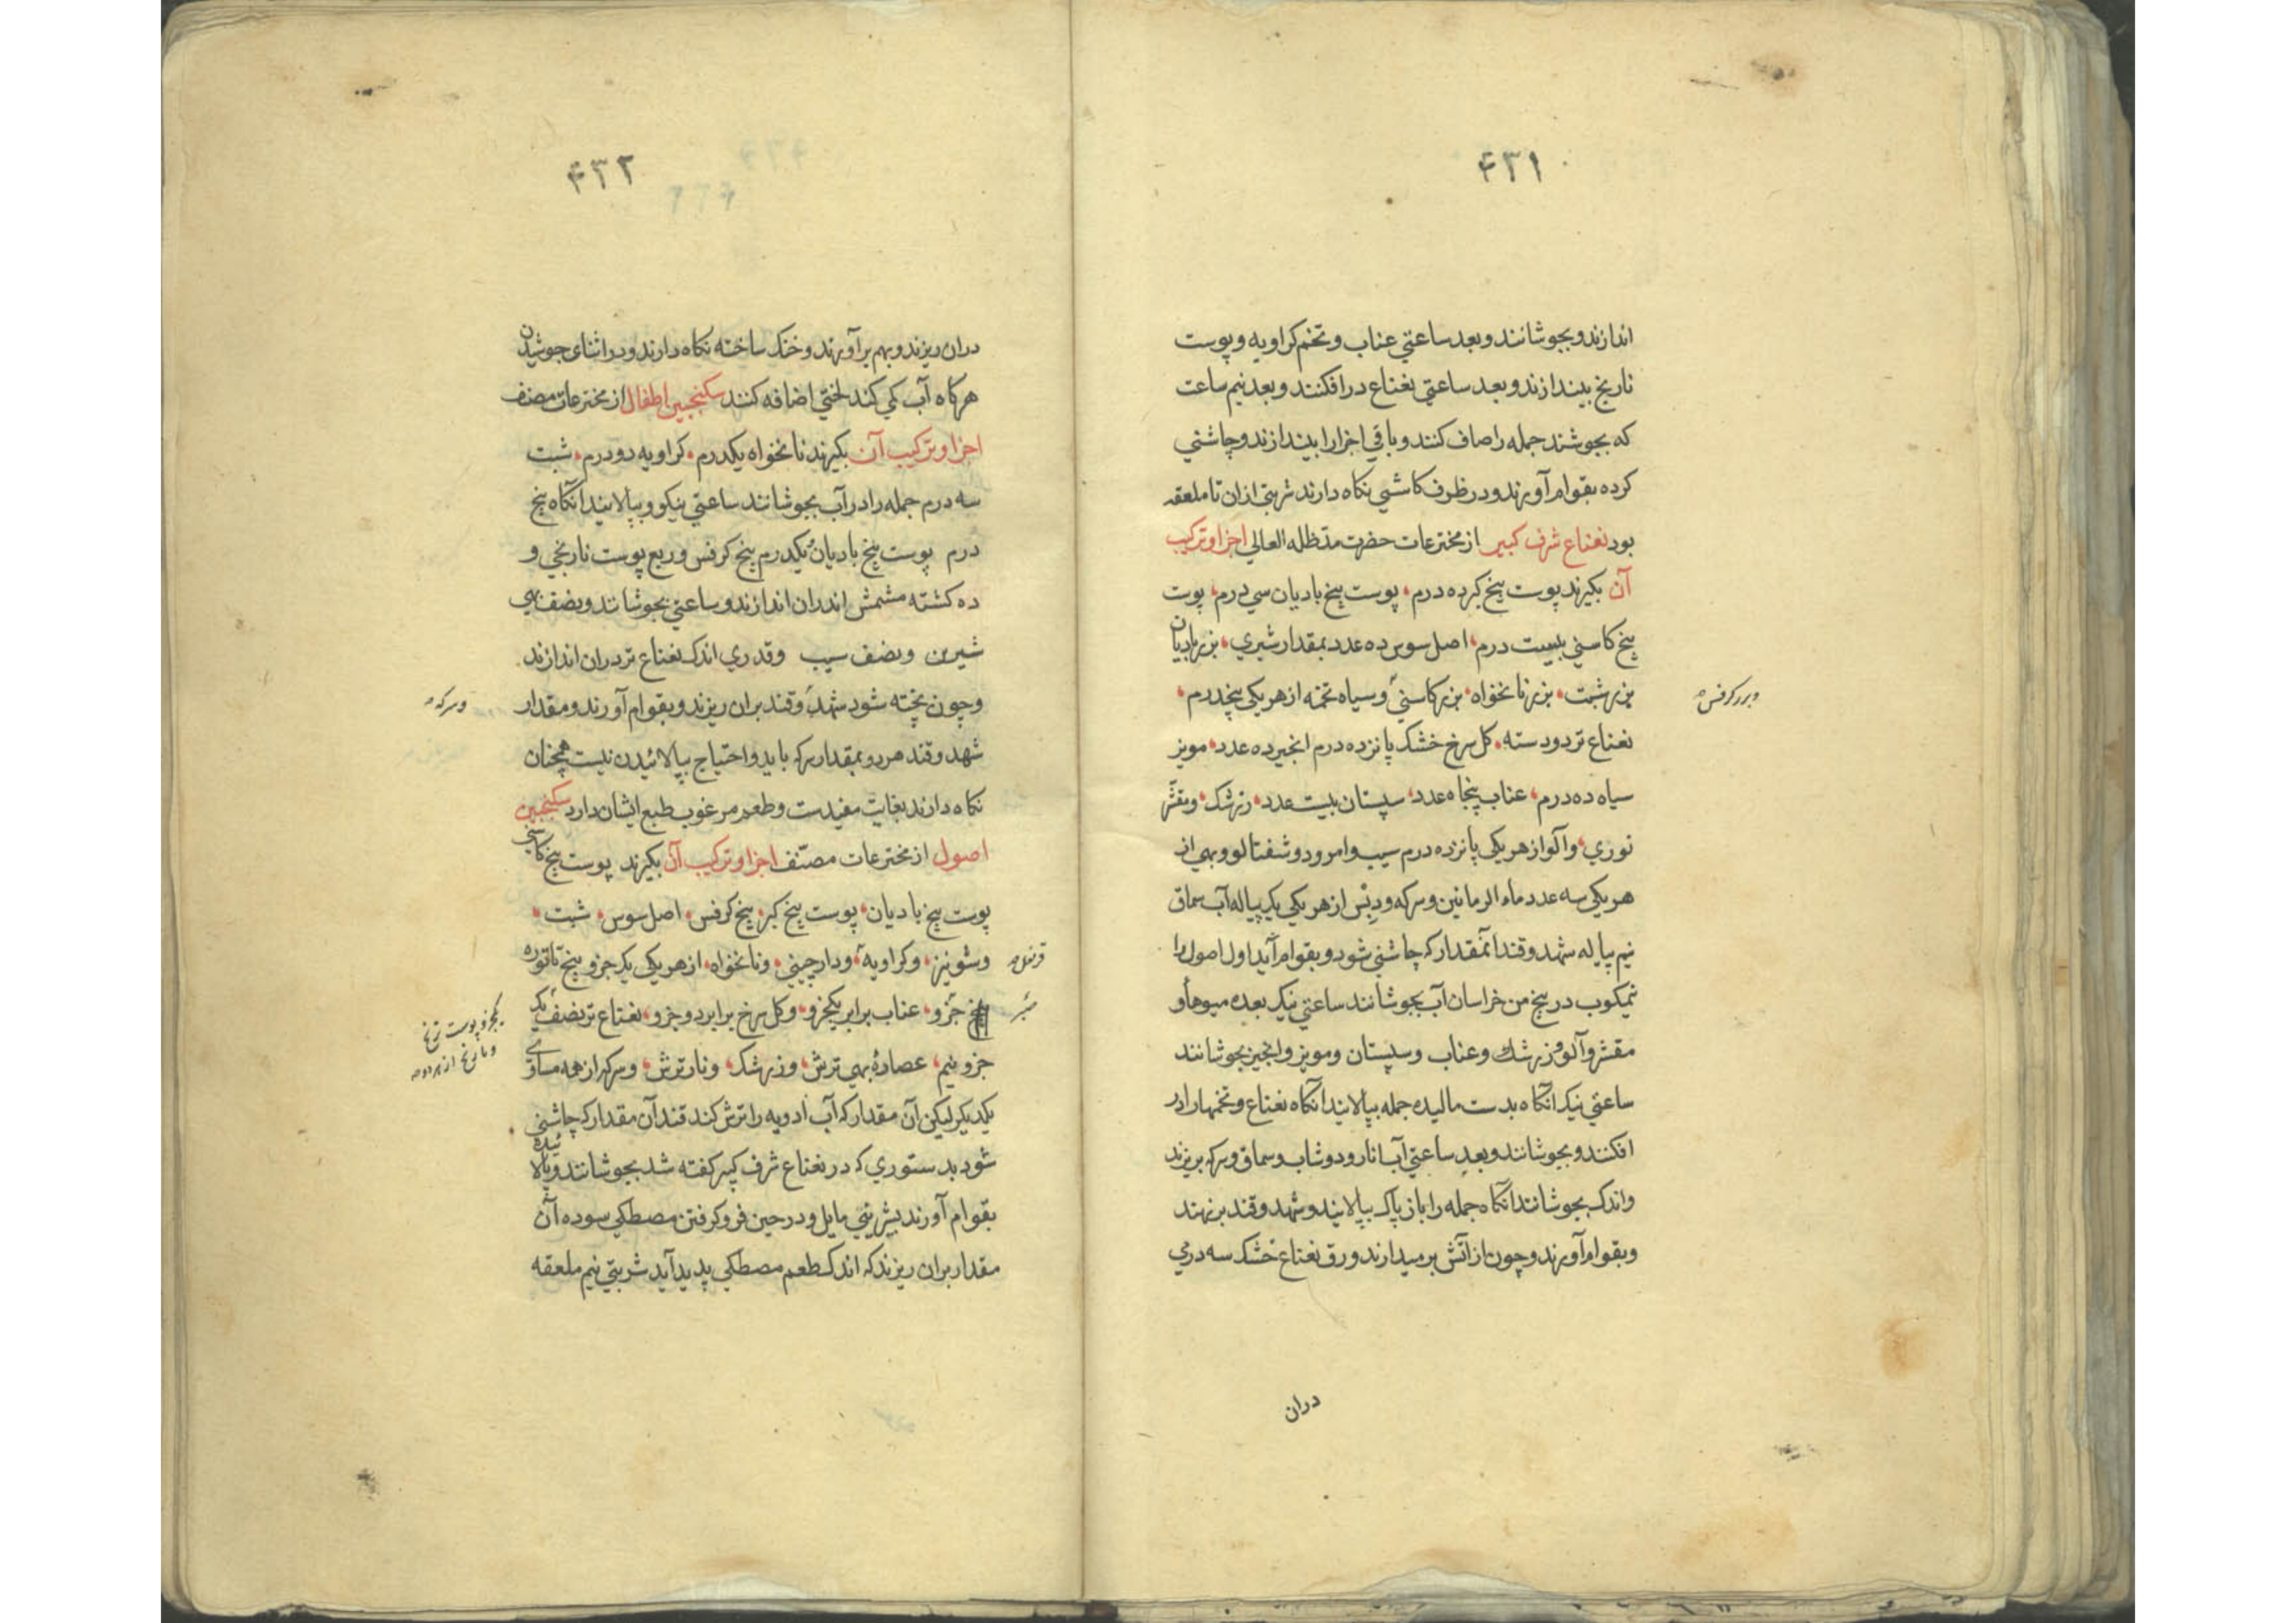 ۴۳۱
اندازند و بجوشانند و بعد ساعتی عناب و تخم کراویه و پوست
نارنج بیندازند و بعد ساعتی نعناع درافکنند و بعد نیم ساعت
که بجوشند جمله را صاف کنند و باقی اجزا را بیندازند و چاشنی
کرده بقوام آورند و در ظرف کاشی نکاه دارند شربتی ازان تا ملعقه
بود نعناع شرف کبیر از مخترعات حضرت مدّظله العالی اجزا و ترکیب
آن بکیرند پوست بیخ کبر ده درم پوست بیخ بادیان سی درم پوست
بیخ کاسنی بیست درم اصل سوس ده عدد بمقدار شبری بزر بادیان
بزر شبت بزر نانخواه بزر کاسنی و سیاه تخمه از هر یکی پنجدرم
وبزر کرفس
نعناع تر دو دسته کل سرخ خشک پانزده درم انجیر ده عدد مویز
سیاه ده درم عناب پنجاه عدد سپستان بیست عدد زرشک و مقشر
توزی و آلو از هر یکی پانزده درم سیب و امرود و شفتالو و بهی از
هر یکی سه عدد ماء الرمانین و سرکه و دبس از هر یکی یک پیاله آب سماق
نیم پیاله شهد و قند آنمقدار که چاشنی شود و بقوام آید اول اصول را
نیمکوب در پنج من خراسان آب بجوشانند ساعتی نیک بعده میوها و
مقشر و آلو و زرشک و عناب و سپستان و مویز و انجیر بجوشانند
ساعتی نیک انکاه بدست مالیده جمله بپالایند آنکاه نعناع و تخمها را در
افکنند و بجوشانند و بعد ساعتی آب انار و دوشاب و سماق و سرکه بریزند
و اندک بجوشانند انکاه جمله را باز پاک بپالایند و شهد و قند برنهند
و بقوام آورند و چون از آتش برمیدارند ورق نعناع خشک سه درمی
دران
۴۳۲
دران ریزند و بهم برآورند و خنک ساخته نکاه دارند و در اثنای جوشیدن
هرکاه آب کمی کند لختی اضافه کنند سکنجبین اطفال از مخترعات مصنف
اجزا و ترکیب آن بکیرند نانخواه یکدرم کراویه دو درم شبت
سه درم جمله را در آب بجوشانند ساعتی نیکو و بپالایند آنکاه پنج
درم پوست بیخ بادیان یکدرم بیخ کرفس و ربع پوست نارنجی و
ده کشته مشمش اندران اندازند و ساعتی بجوشانند و نصف بهی
شیرین و نصف سیب و قدری اندک نعناع تر دران اندازند
و چون پخته شود شهد و قند بران ریزند و بقوام آورند و مقدار
و سرکه
شهد و قند هر دو بمقدار سرکه باید و احتیاج بپالائیدن نیست همچنان
نکاه دارند بغایت مفیدست و طعم مرغوب طبع ایشان دارد سکنجبین
اصول از مخترعات مصنّف اجزا و ترکیب آن بکیرند پوست بیخ کاسنی
پوست بیخ بادیان پوست بیخ کبر بیخ کرفس اصل سوس شبت
و شونیز و کراویه و دارچینی و نانخواه از هر یکی یک جزو بیخ تاتوره
قرنفل
جزو عناب برابر یکجزو و کل سرخ برابر دو جزو نعناع تر نصف یک
یکجزو پوست ترنج
و نارنج از هر دو
جزو نیم عصارهٔ بهی ترش و زرشک و نار ترش و سرکه از همه مساوی
یکدیکر لیکن آن مقدار که آب ادویه را ترش کند قند آن مقدار که چاشنی
شود بدستوری که در نعناع شرف کبیر کفته شد بجوشانند و پالائیده
بقوام آورند بشیرینی مایل و در حین فرو کرفتن مصطکی سوده آن
مقدار بران ریزند که اندک طعم مصطکی پدید آید شربتی نیم ملعقه